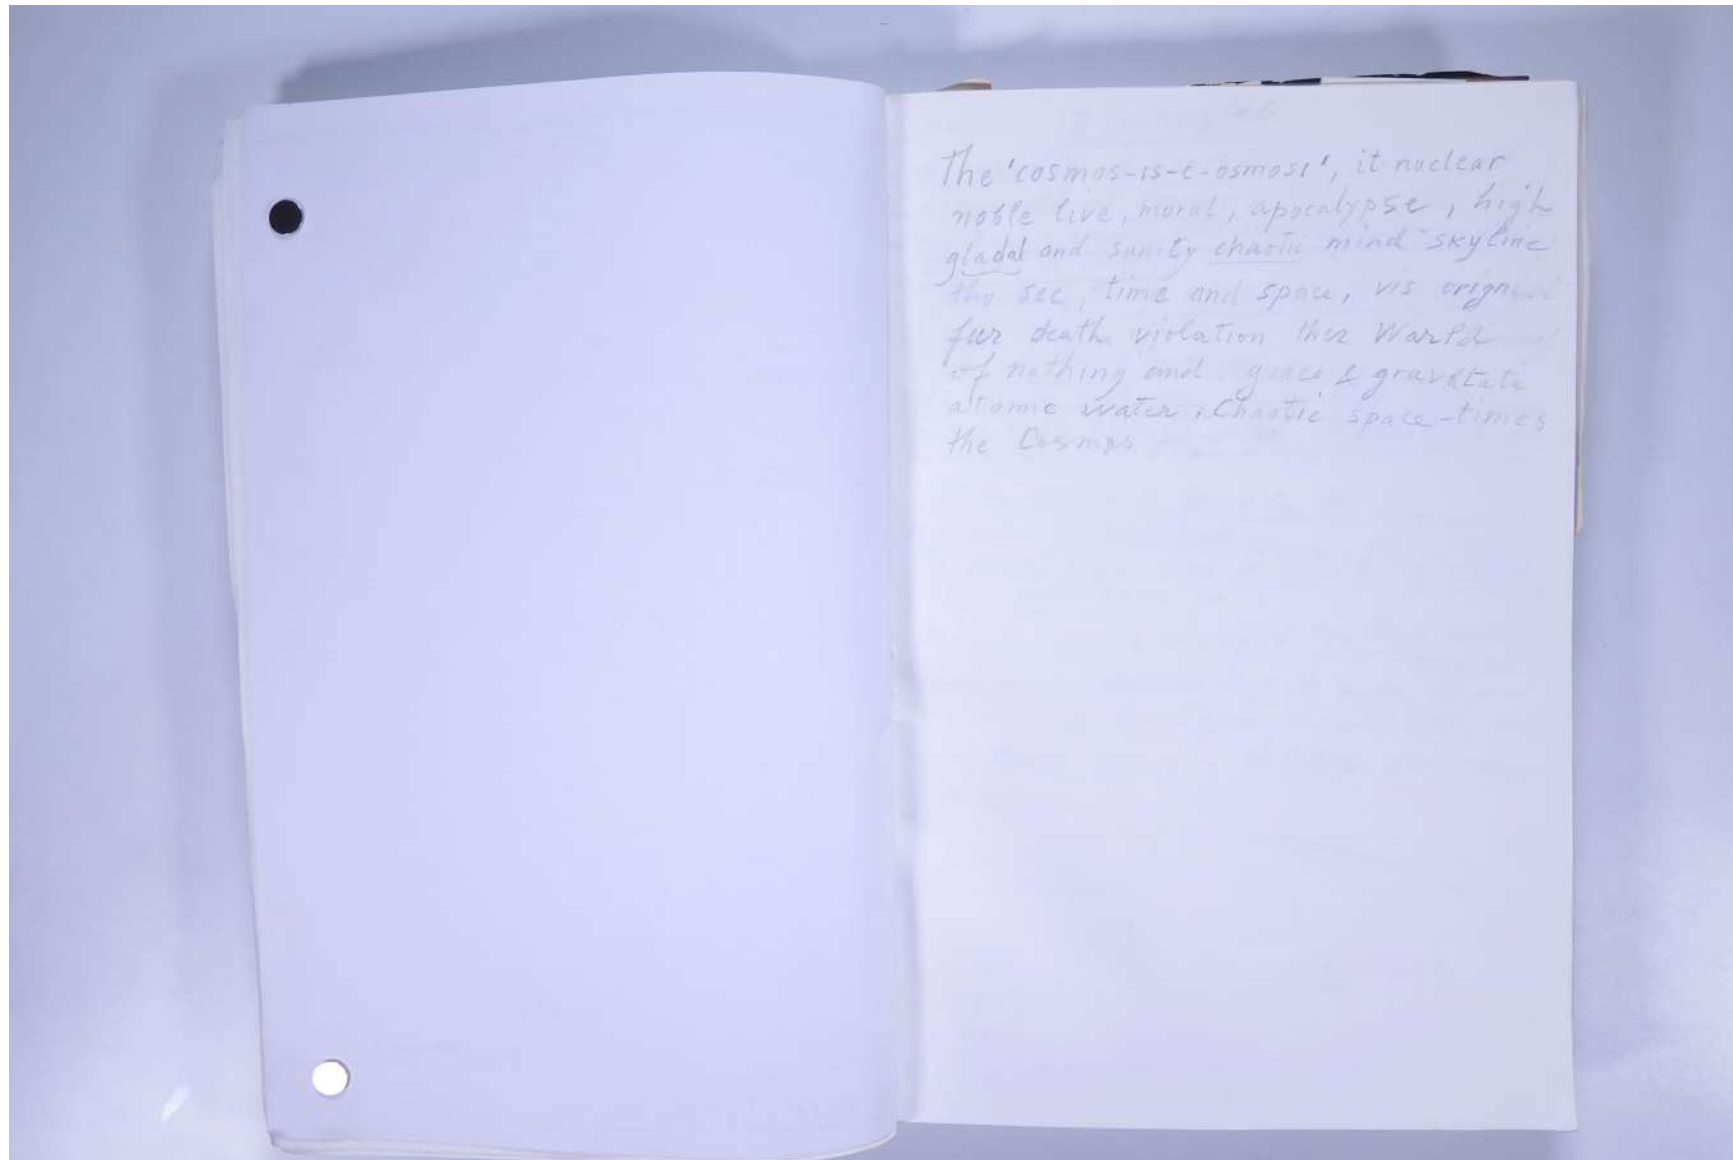 The 'cosmos-is-c-osmosi', it nuclear
noble live, moral, apocalypse, high
gladal and sanity chaotic mind skyline
the see, time and space, vis
for death violation ther World
of nothing and grace & gravitate
atomic water, Chaotic space-times
the Cosmos